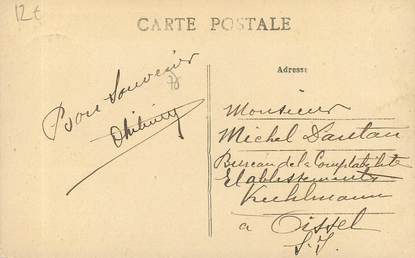 12€
CARTE POSTALE
Adresse
Bon Souvenir
70
Monsieur
Michel Dautan
Bureau de la Comptabilité
Etablissements
Kuhlmann
a Oissel
S. I.